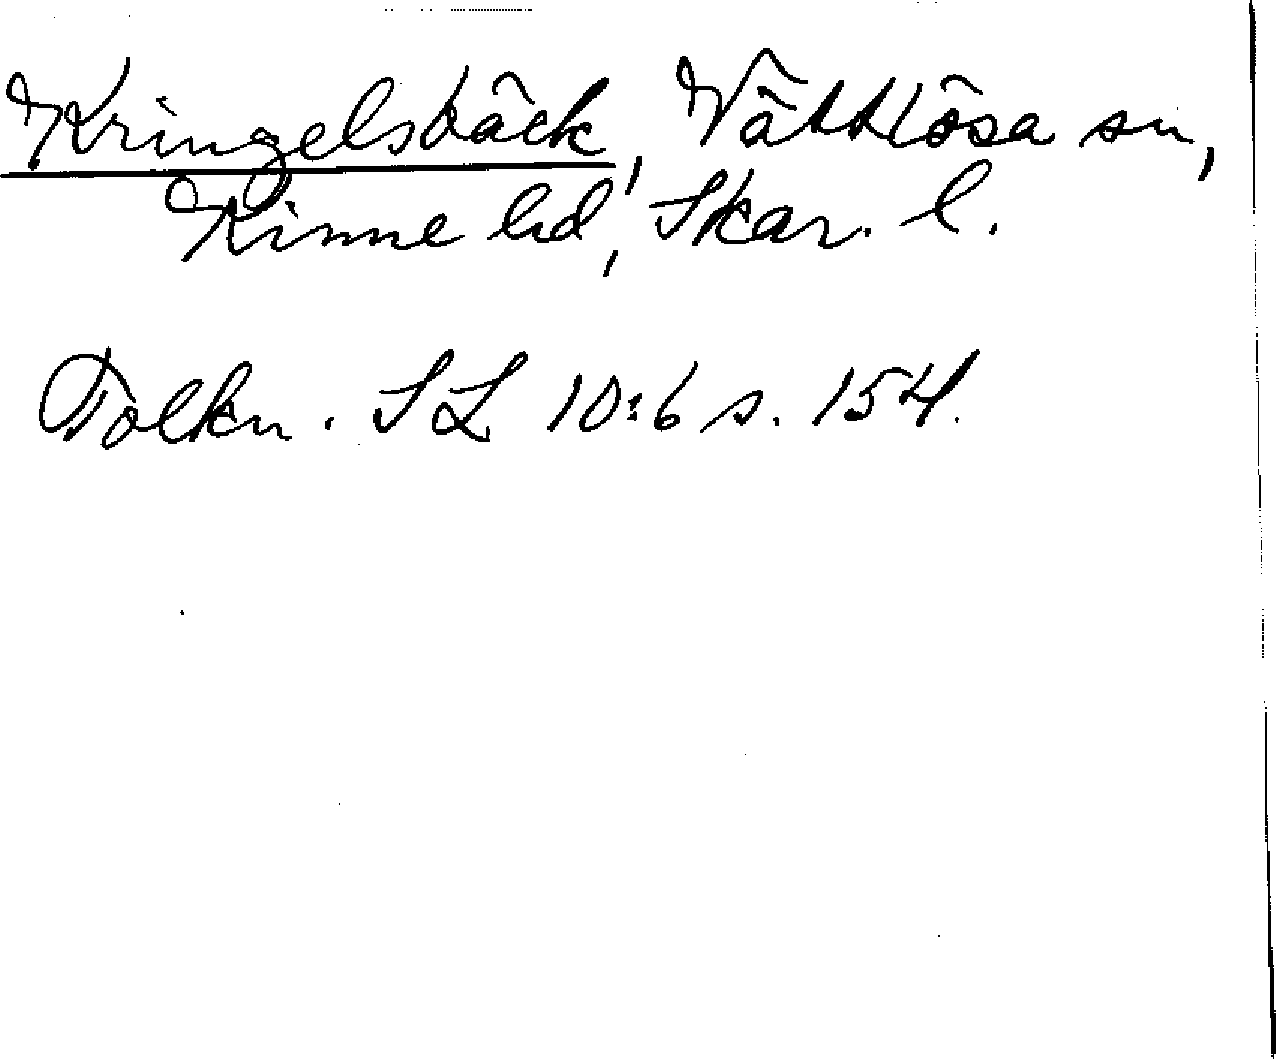 Kringelsbäck, Vättlösa sn,
Kinne hd, Skar. l.
Folkn. SL 10:6 s. 154.